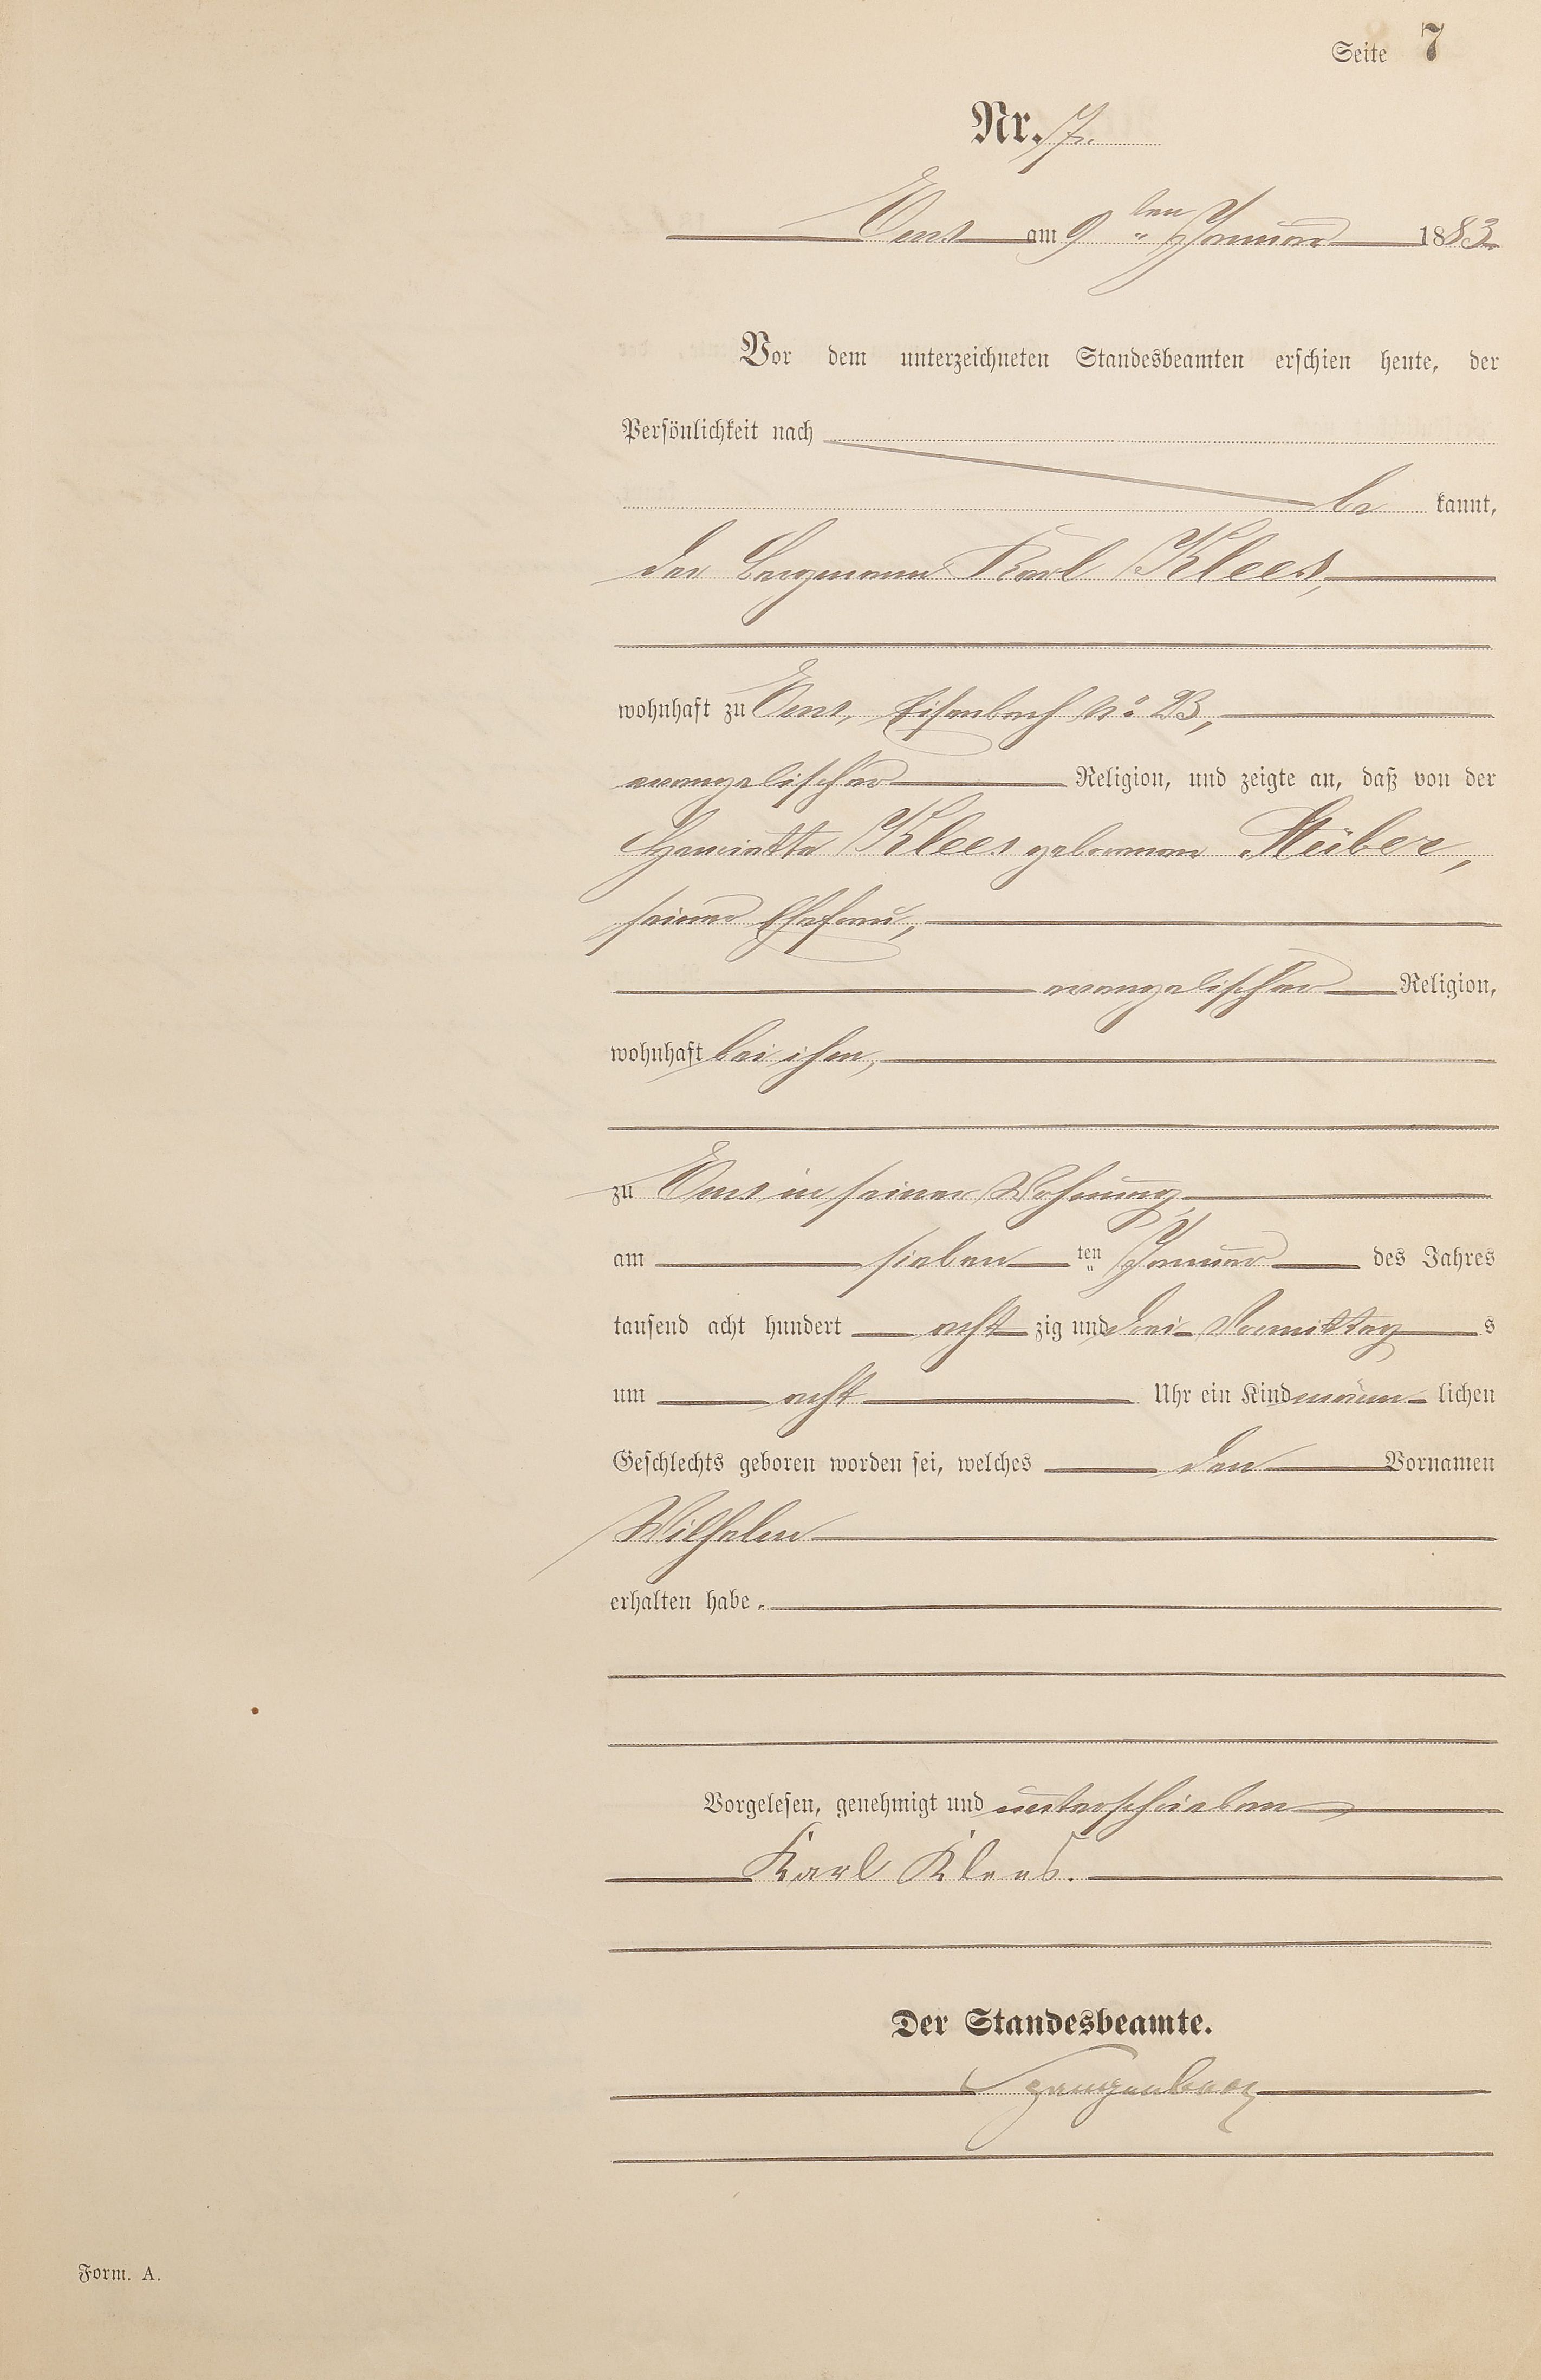 Seite 7
Nr. 7.
Ems am 9 ten Januar 1883.
Vor dem unterzeichneten Standesbeamten erschien heute, der
Persönlichkeit nach
be kannt,
der Bergmann Karl Klees,
wohnhaft zu Ems, Eisenbach No 23,
evangelischer Religion, und zeigte an, daß von der
Henriette Klees geborenen Stüber,
seiner Ehefrau,
evangelischer Religion,
wohnhaft bei ihm,
zu Ems in seiner Wohnung,
am sieben ten Januar des Jahres
tausend acht hundert acht zig und drei Vormittag s
um acht Uhr ein Kind männ lichen
Geschlechts geboren worden sei, welches den Vornamen
Wilhelm
erhalten habe.
Vorgelesen, genehmigt und unterschrieben
Karl Klees.
Der Standesbeamte.
Spangenberg
Form. A.